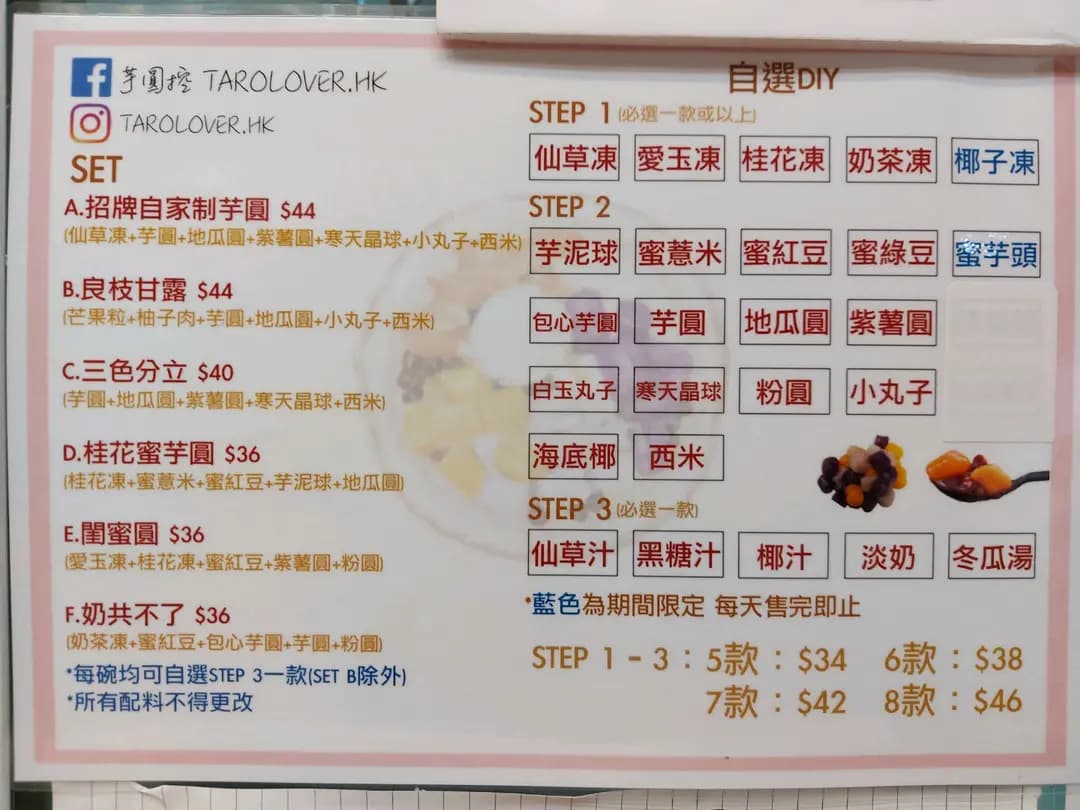 芋圓控 TAROLOVER.HK
TAROLOVER.HK
SET
A.招牌自家制芋圓 $44
(仙草凍+芋圓+地瓜圓+紫薯圓+寒天晶球+小丸子+西米)
B.良枝甘露 $44
(芒果粒+柚子肉+芋圓+地瓜圓+小丸子+西米)
C.三色分立 $40
(芋圓+地瓜圓+紫薯圓+寒天晶球+西米)
D.桂花蜜芋圓 $36
(桂花凍+蜜薏米+蜜紅豆+芋泥球+地瓜圓)
E.閨蜜圓 $36
(愛玉凍+桂花凍+蜜紅豆+紫薯圓+粉圓)
F.奶共不了 $36
(奶茶凍+蜜紅豆+包心芋圓+芋圓+粉圓)
*每碗均可自選STEP 3一款(SET B除外)
*所有配料不得更改
自選DIY
STEP 1 (必選一款或以上)
仙草凍 愛玉凍 桂花凍 奶茶凍 椰子凍
STEP 2
芋泥球 蜜薏米 蜜紅豆 蜜綠豆 蜜芋頭
包心芋圓 芋圓 地瓜圓 紫薯圓
白玉丸子 寒天晶球 粉圓 小丸子
海底椰 西米
STEP 3 (必選一款)
仙草汁 黑糖汁 椰汁 淡奶 冬瓜湯
*藍色為期間限定 每天售完即止
STEP 1 - 3 : 5款 : $34 6款 : $38
7款 : $42 8款 : $46